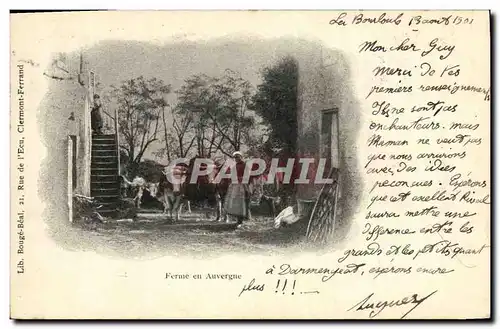 La Bourboule 13 août 1901
Mon cher Guy
Merci de tes
premiers renseignements
Ils ne sont pas
enchanteurs. mais
Maman ne veut pas
que nous arrivions
avec des idées
préconçues. Espérons
que cet excellent Rival
saura mettre une
différence entre les
grands et les petits quant
à Darmengeat, espérons encore
plus !!!
Lucquez
CPAPHIL.com
Ferme en Auvergne
Lib. Rougé-Béal. 21. Rue de l'Ecu, Clermont-Ferrand